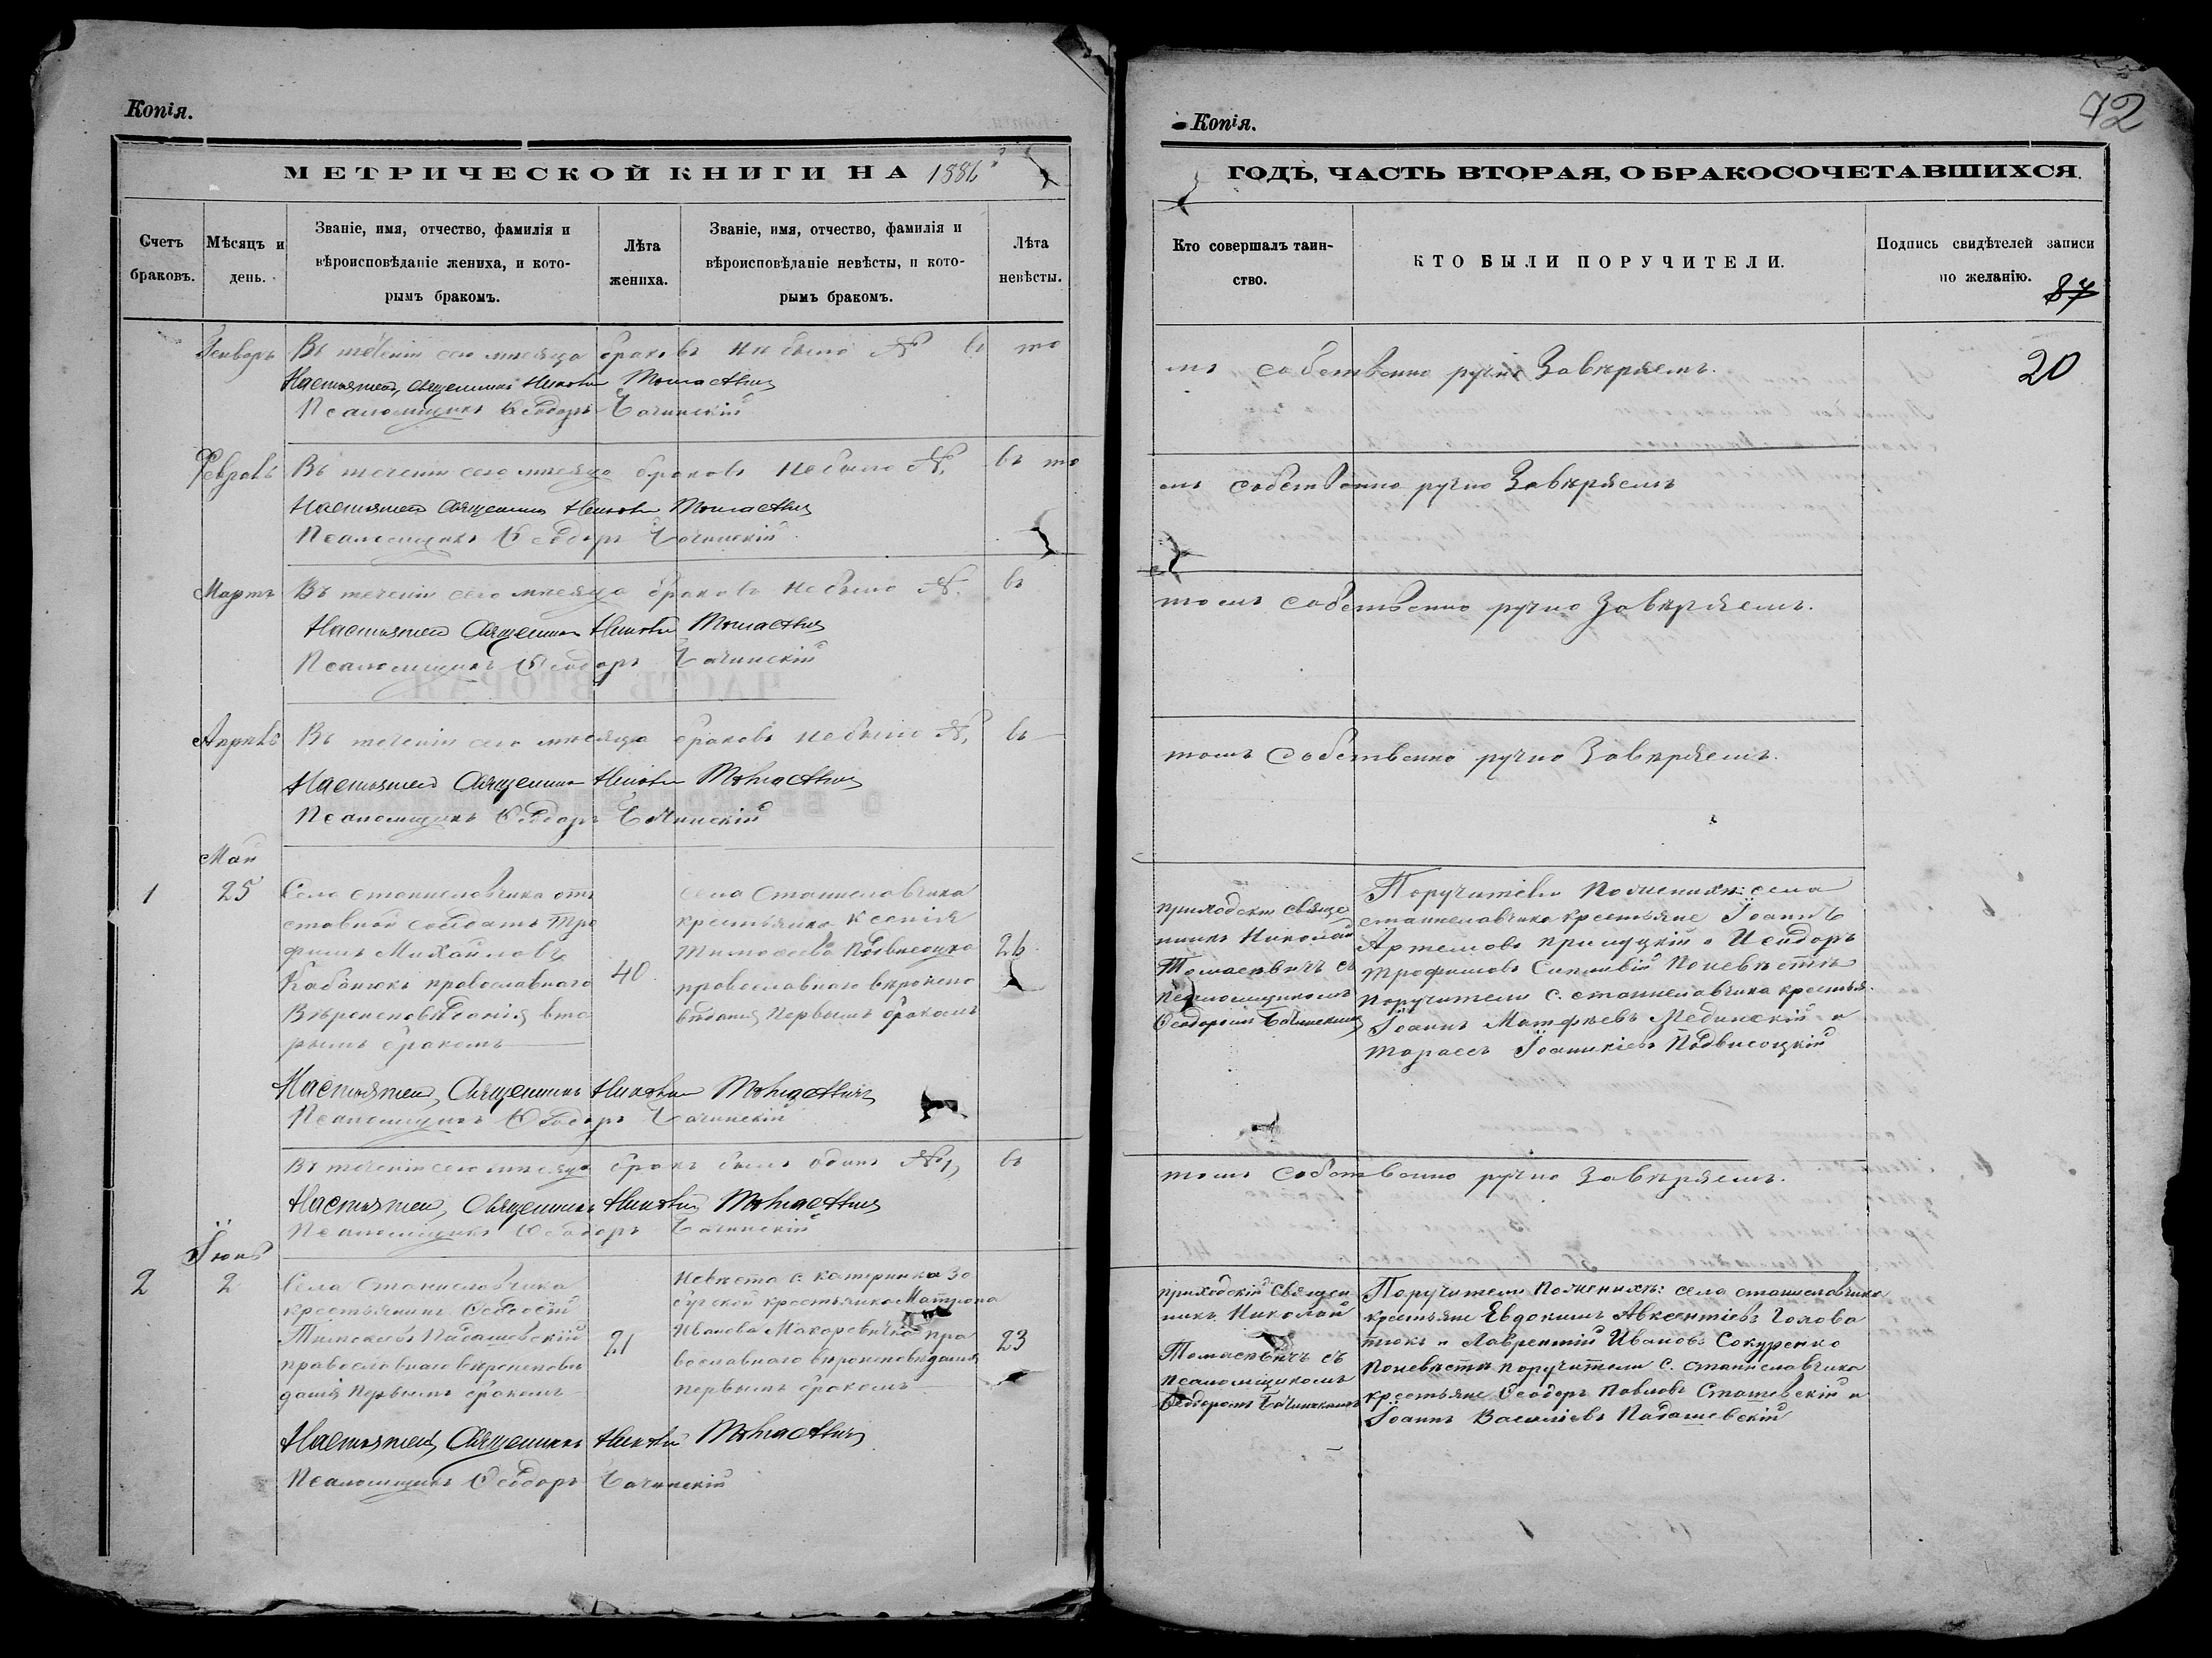 Копія.
МЕТРИЧЕСКОЙ КНИГИ НА 1886
Счетъ браковъ.
Мѣсяцъ и день.
Званіе, имя, отчество, фамилія и вѣроисповѣданіе жениха, и которымъ бракомъ.
Лѣта жениха.
Званіе, имя, отчество, фамилія и вѣроисповѣданіе невѣсты, и которымъ бракомъ.
Лѣта невѣсты.
Генварь
Въ теченіи сего мѣсяца браковъ не было № въ то
Настоятель, Священникъ Николай Томасевичъ
Псаломщикъ Ѳеодоръ Бачинскій
Февраль
Въ теченіи сего мѣсяца браковъ не было №, въ то
Настоятель Священникъ Николай Томасевичъ
Псаломщикъ Ѳеодоръ Бачинскій
Мартъ
Въ теченіи сего мѣсяца браковъ не было №. въ
Настоятель Священникъ Николай Томасевичъ
Псаломщикъ Ѳеодоръ Бачинскій
Апрѣль
Въ теченіи сего мѣсяца браковъ не было №, въ
Настоятель Священникъ Николай Томасевичъ
Псаломщикъ Ѳеодоръ Бачинскій
Май
1
25
Села Станиславчика от
ставной солдатъ Тро
фимъ Михайловъ
Кабанюкъ православнаго
Вѣроисповѣданія вто
рымъ бракомъ
40
села Станиславчика
крестьянка Ксенія
Тимоѳеева Подвисоцка
православнаго вѣроиспо
вѣданія первымъ бракомъ
26
Настоятель, Священникъ Николай Томасевичъ
Псаломщикъ Ѳеодоръ Бачинскій
Въ теченіи сего мѣсяца бракъ былъ одинъ №1, въ
Настоятель, Священникъ Николай Томасевичъ
Псаломщикъ Ѳеодоръ Бачинскій
Іюнь
2
2
Села Станиславчика
крестьянинъ
православнаго вѣроисповѣ
данія первымъ бракомъ
21
Невѣста с.
крестьянка Матрона
Иванова Макаревична пра
вославнаго вѣроисповѣданія
первымъ бракомъ
23
Настоятель, Священникъ Николай Томасевичъ
Псаломщикъ Ѳеодоръ Бачинскій
Копія.
72
ГОДЪ, ЧАСТЬ ВТОРАЯ, О БРАКОСОЧЕТАВШИХСЯ.
Кто совершалъ таинство.
КТО БЫЛИ ПОРУЧИТЕЛИ.
Подпись свидѣтелей записи по желанію.
87
20
мъ собственно ручно Завѣряемъ.
мъ собственно ручно Завѣряемъ
томъ собственно ручно Завѣряемъ.
томъ собственно ручно Завѣряемъ.
приходскій свяще
нникъ Николай
Томасевичъ съ
псаломщикомъ
Ѳеодоромъ Бачинскимъ
Поручители по женихѣ: села
Станиславчика крестьяне Іоаннъ
Артемовъ Прилуцкій и Исидоръ
Трофимовъ по невѣстѣ
поручители с. Станиславчика крестья.
Іоаннъ Матфѣевъ Лебинскій и
Тарасъ Іоанникіевъ Подвисоцкій
томъ собственно ручно Завѣряемъ.
приходскій священ
никъ Николай
Томасевичъ съ
псаломщикомъ
Ѳеодоромъ Бачинскимъ
Поручители по женихѣ: села Станиславчика
крестьяне Евдокимъ Авксентіевъ Голова
тюкъ и Лаврентій Ивановъ Сокуренко
по невѣстѣ поручители с. Станиславчика
крестьяне Ѳеодоръ Павловъ Сташевскій и
Іоаннъ Василіевъ Падашевскій